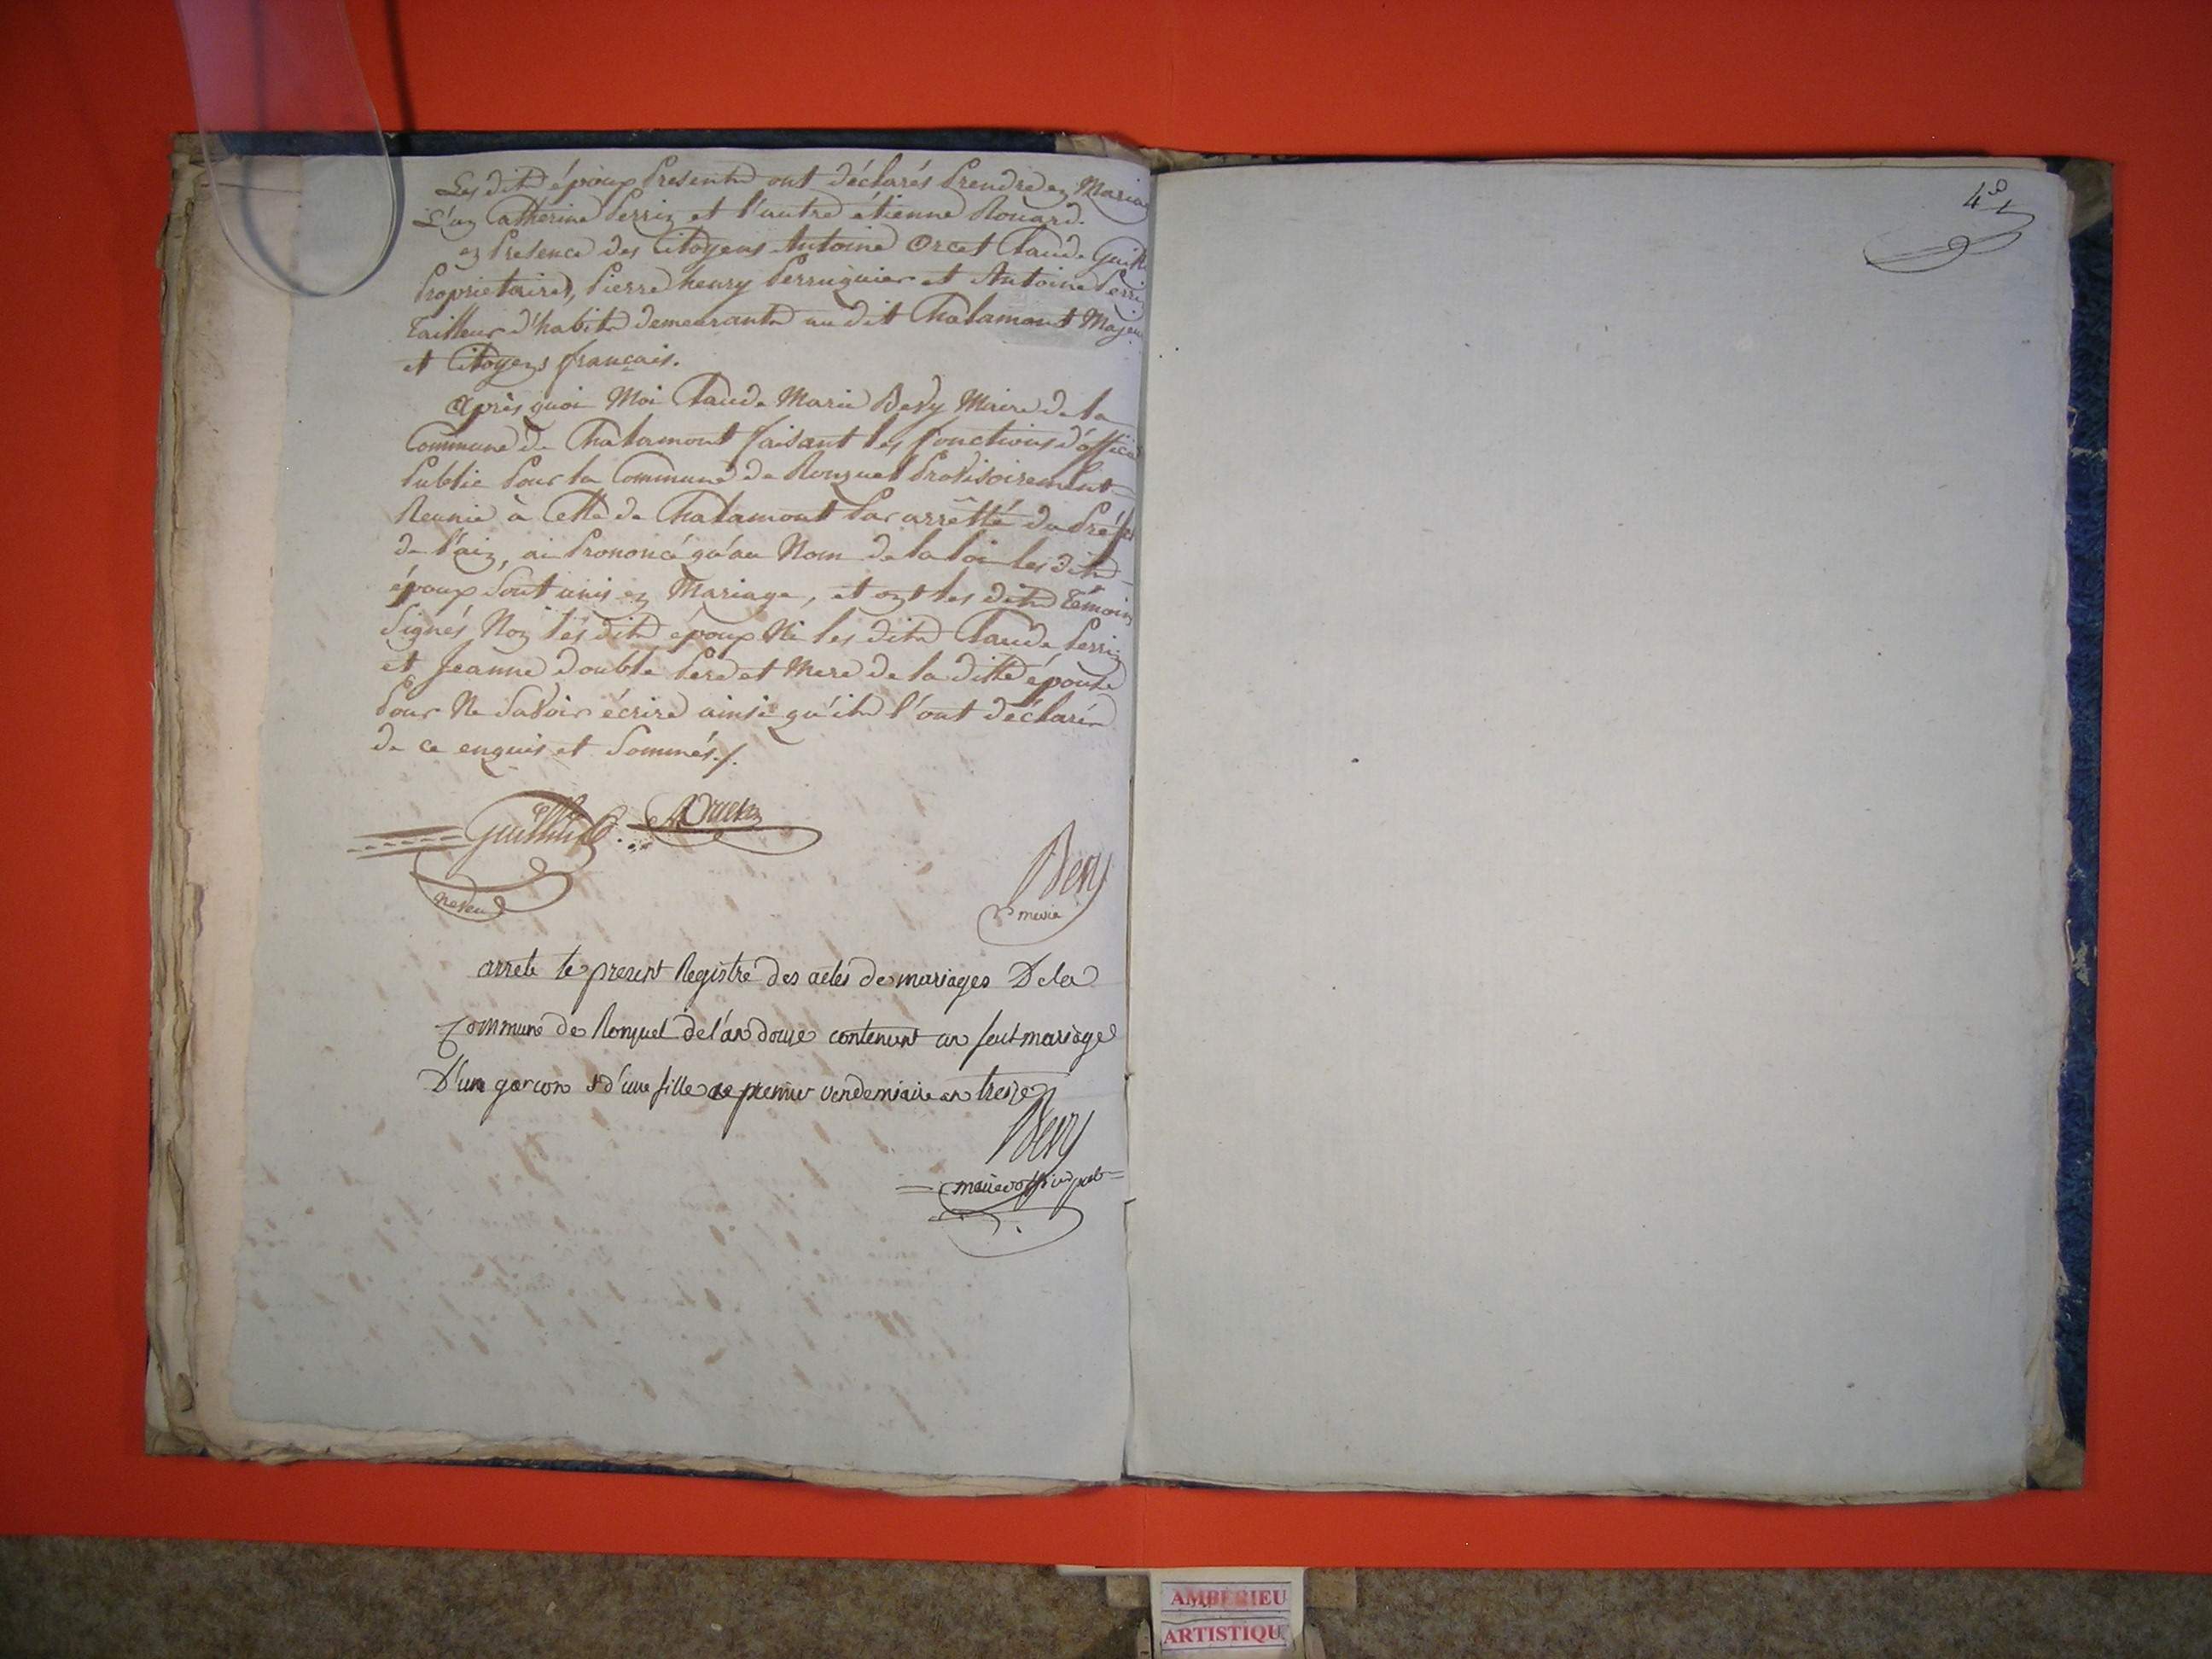 Les dits époux Presents ont déclarés Prendre en Maria
L'un Catherine Perrin et l'autre étienne Rouard.
en Presence des Citoyens Antoine Orcet Claude Guill
Proprietaires, Pierre henry Perruquier et Antoine Perrin
Tailleur d'habits demeurants au dit Chalamont Majeur
et Citoyens français.
Après quoi Moi Claude Marie Bevy Maire de la
Commune de Chalamont faisant les fonctions d'officier
Public Pour la Commune de Ronzuel Provisoirement
Reunie à Celle de Chalamont Par arrêtté du Préfet
de l'ain, ai Prononcé qu'au Nom de la loi les dits
époux Sont unis en Mariage, et ont les dits Temoins
Signés Non les dits époux Ni les dits Claude Perrin
et Jeanne double Pere et Mere de la ditte épouse
Pour Ne Savoir écrire ainsi qu'ils l'ont déclarés
de ce enquis et Sommés./.
Bevy
maire
arrete le present Registre des actes de mariages De la
Commune de Ronzuel de l'an douze contenant un seul mariage
D'un garcon & d'une fille ce premier vendemiaire an treize
Bevy
maire & officier pub
4e
AMBERIEU
ARTISTIQU